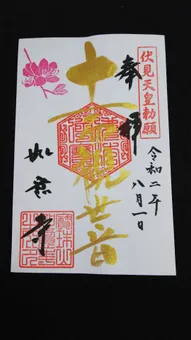 伏見天皇勅願
奉拝
令和二年
八月一日
十一面観世音
如意寺